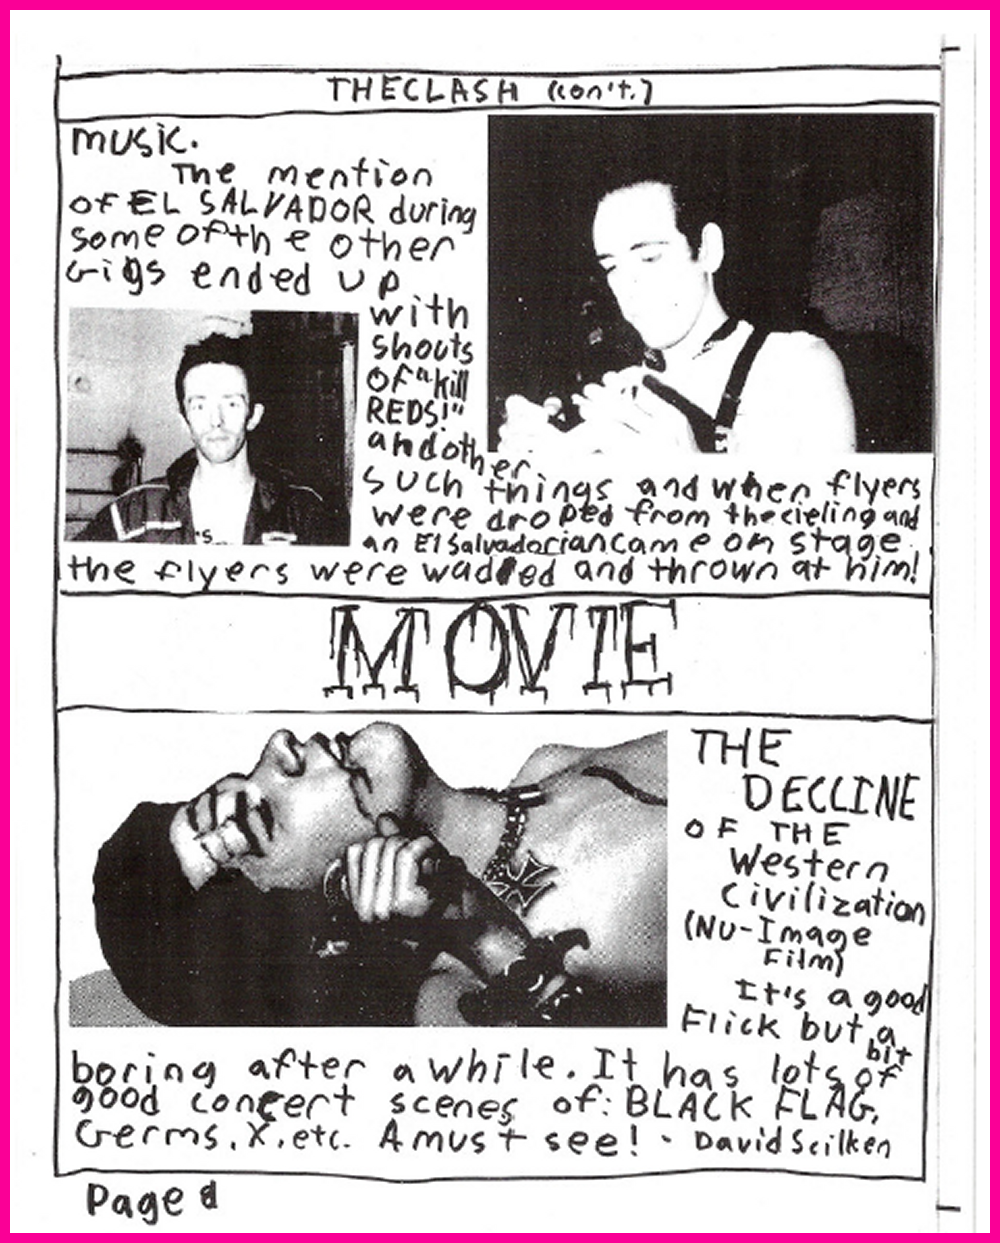 THE CLASH (con't.)
music.
The mention
of EL SALVADOR during
some of the other
Gigs ended up
with
shouts
of "kill
REDS!"
and other
such things and when flyers
were droped from the cieling and
an El Salvadorian came on stage
the flyers were wadded and thrown at him!
MOVIE
THE
DECLINE
OF THE
Western
Civilization
(NU-Image
Film)
It's a good
Flick but a
bit
boring after a while. It has lots of
good concert scenes of: BLACK FLAG,
Germs, X, etc. A must see! - David Scilken
Page